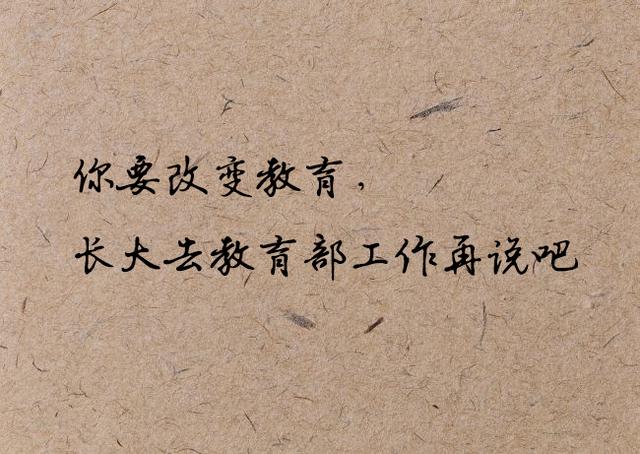 你要改变教育，
长大去教育部工作再说吧